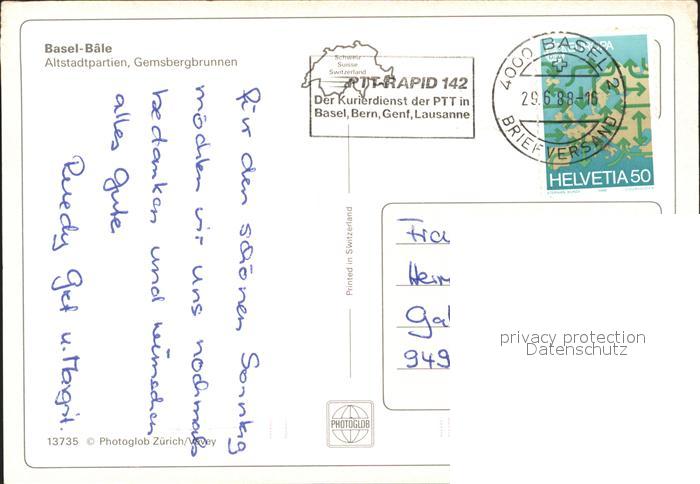 Basel-Bâle
Altstadtpartien, Gemsbergbrunnen
Schweiz
Suisse
Switzerland
PTT-RAPID 142
Der Kurierdienst der PTT in
Basel, Bern, Genf, Lausanne
4000 BASEL 2
29.6.88-16
BRIEFVERSAND
HELVETIA 50
für den schönen Sonntag
möchten wir uns nochmals
bedanken und wünschen
alles Gute
Gret u. Margrit.
Printed in Switzerland
Fra
Heim
Gal
949
privacy protection
Datenschutz
PHOTOGLOB
13735 © Photoglob Zürich/Vevey